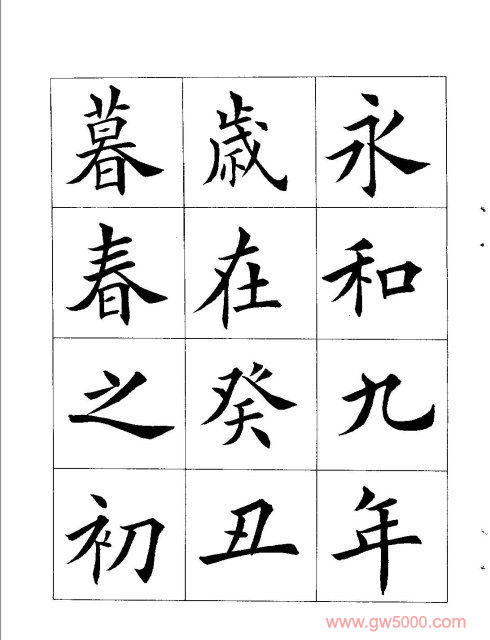 永和九年
歳在癸丑
暮春之初
www.gw5000.com